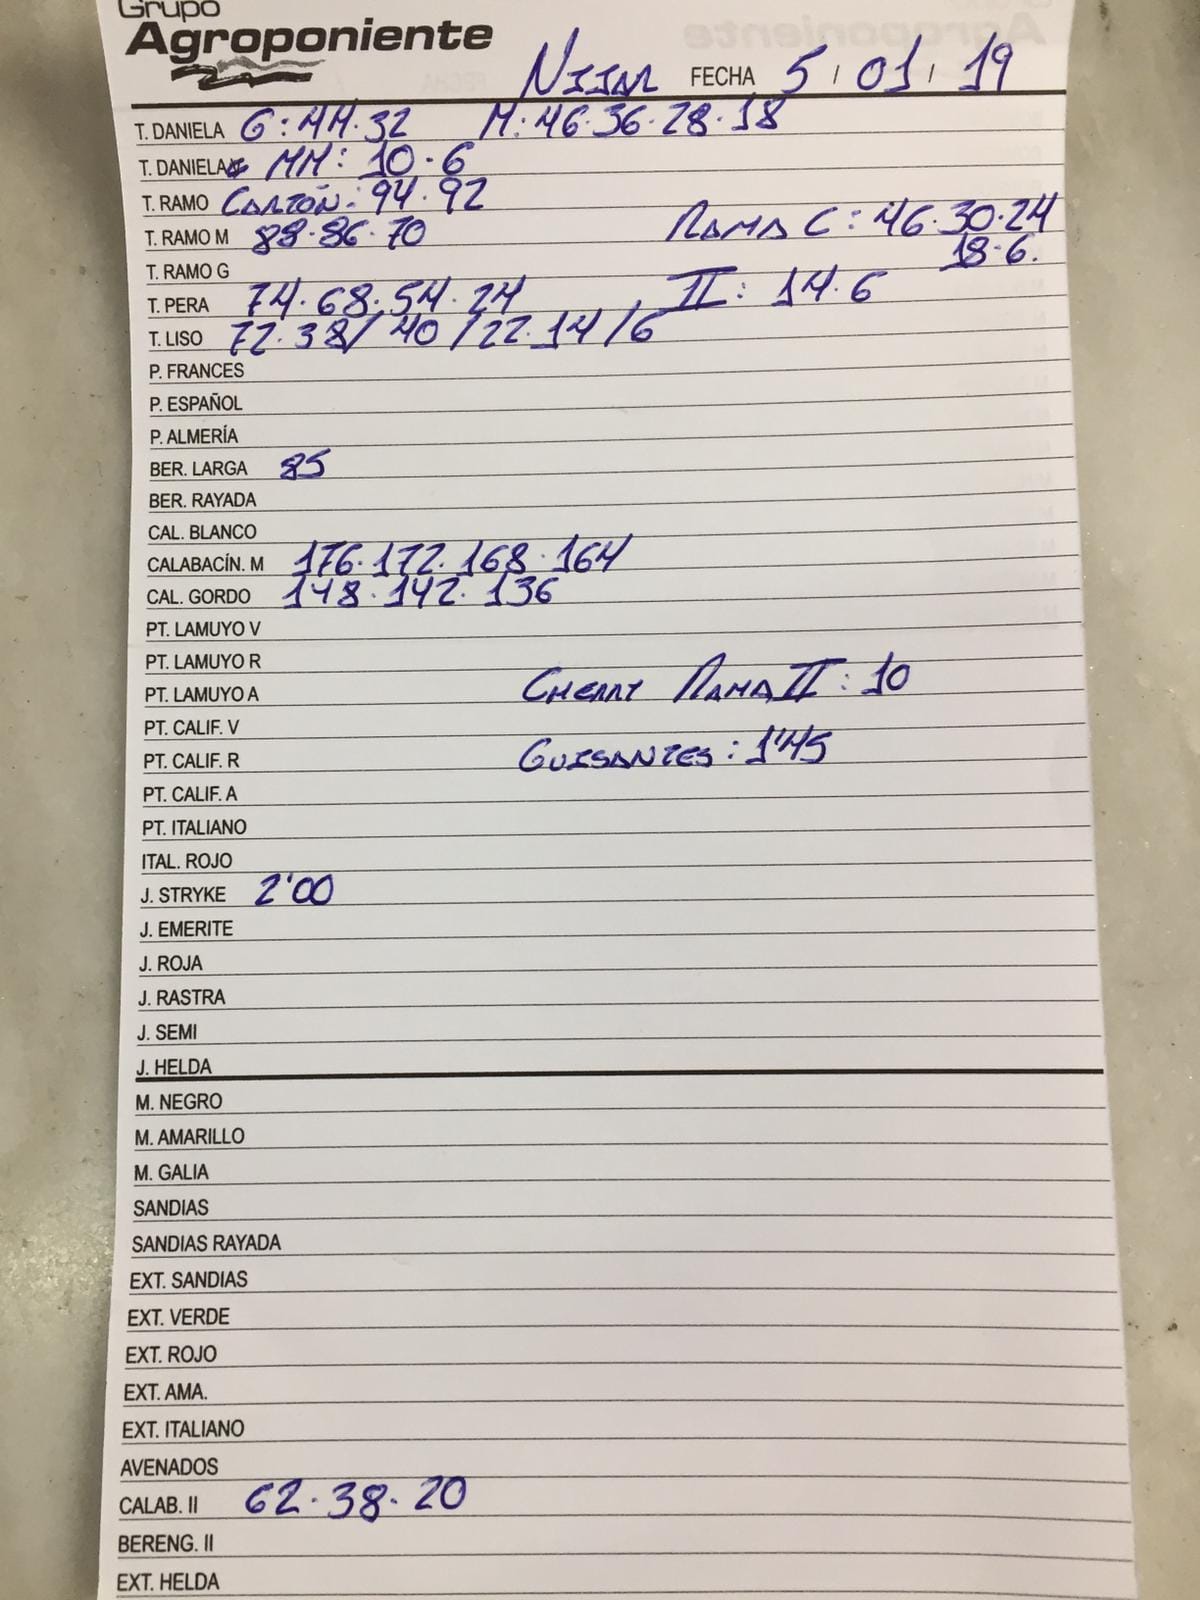 Grupo
Agroponiente
NIJAR FECHA 5 / 01 / 19
T. DANIELA G: 44.32 M: 46.36.28.18
T. DANIELA MM: 10.6
T. RAMO CARTÓN: 94.92
T. RAMO M 88.86.70 RAMA C: 46.30.24
18.6.
T. RAMO G
T. PERA 74.68.54.24 II: 14.6
T. LISO 72.38/40/22.14/6
P. FRANCES
P. ESPAÑOL
P. ALMERÍA
BER. LARGA 85
BER. RAYADA
CAL. BLANCO
CALABACÍN. M 176.172.168.164
CAL. GORDO 148.142.136
PT. LAMUYO V
PT. LAMUYO R
PT. LAMUYO A CHERRY RAMA II: 10
PT. CALIF. V
PT. CALIF. R GUISANTES: 1'45
PT. CALIF. A
PT. ITALIANO
ITAL. ROJO
J. STRYKE 2'00
J. EMERITE
J. ROJA
J. RASTRA
J. SEMI
J. HELDA
M. NEGRO
M. AMARILLO
M. GALIA
SANDIAS
SANDIAS RAYADA
EXT. SANDIAS
EXT. VERDE
EXT. ROJO
EXT. AMA.
EXT. ITALIANO
AVENADOS
CALAB. II 62.38.20
BERENG. II
EXT. HELDA